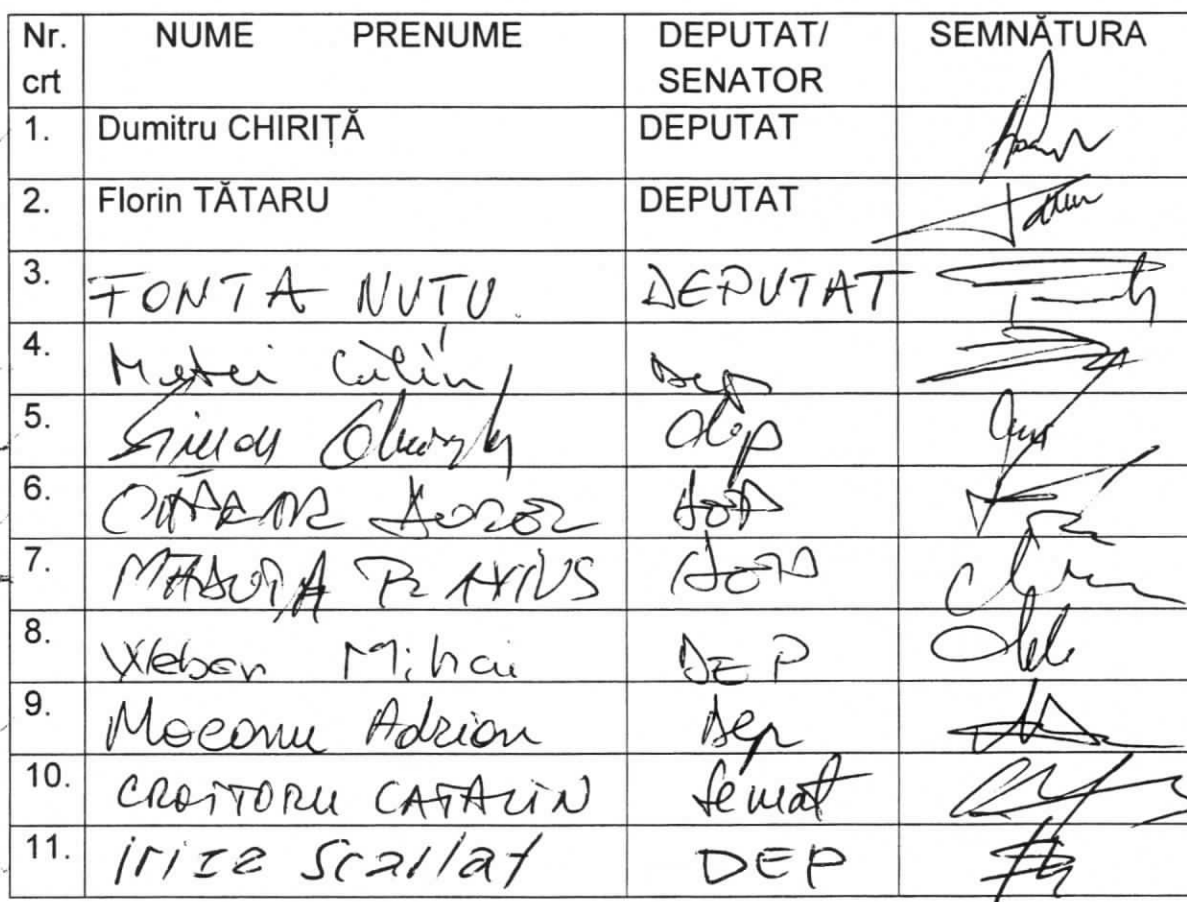 Nr. crt NUME PRENUME DEPUTAT/ SENATOR SEMNĂTURA
1. Dumitru CHIRIȚĂ DEPUTAT
2. Florin TĂTARU DEPUTAT
3. FONTA NUTU DEPUTAT
4. Matei Călin Dep
5. Simon Gheorghe dep
6. DOREL DEP
7. MĂDUȚA FLAVIUS DEP
8. Weber Mihai DEP
9. Mocanu Adrian Dep
10. CROITORU CATALIN Senat
11. iriza Scarlat DEP